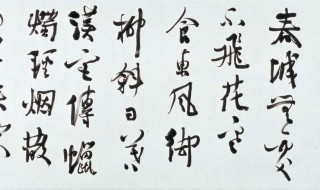 春城無處
不飛花寒
食東風御
柳斜日暮
漢宮傳蠟
燭輕烟散